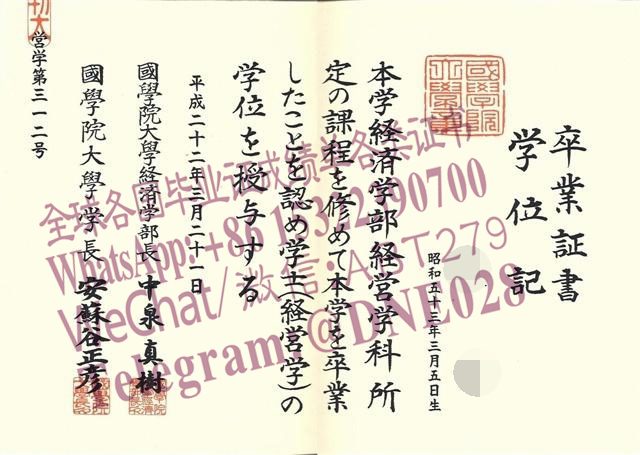 卒業証書
学位記
國學院大學
昭和五十三年三月五日生
本学経済学部経営学科所
定の課程を修めて本学を卒業
したことを認め学士(経営学)の
学位を授与する
平成二十二年三月二十一日
國學院大學経済学部長 中泉真樹
國學院大學学長 安蘇谷正彦
営学第三一二号
全球各國毕业证成绩单各类证书
WhatsApp:+86
WeChat/微信:
Telegram:@DNE2028